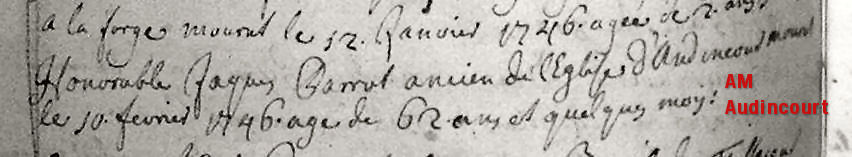 a la forge mourut le 12. Janvier 1746. agée de 2. ans.
Honorable Jaques Parrot ancien de l'Eglise d'Audincourt mourut
le 10. fevrier 1746. age de 62. ans et quelques mois.
AM
Audincourt